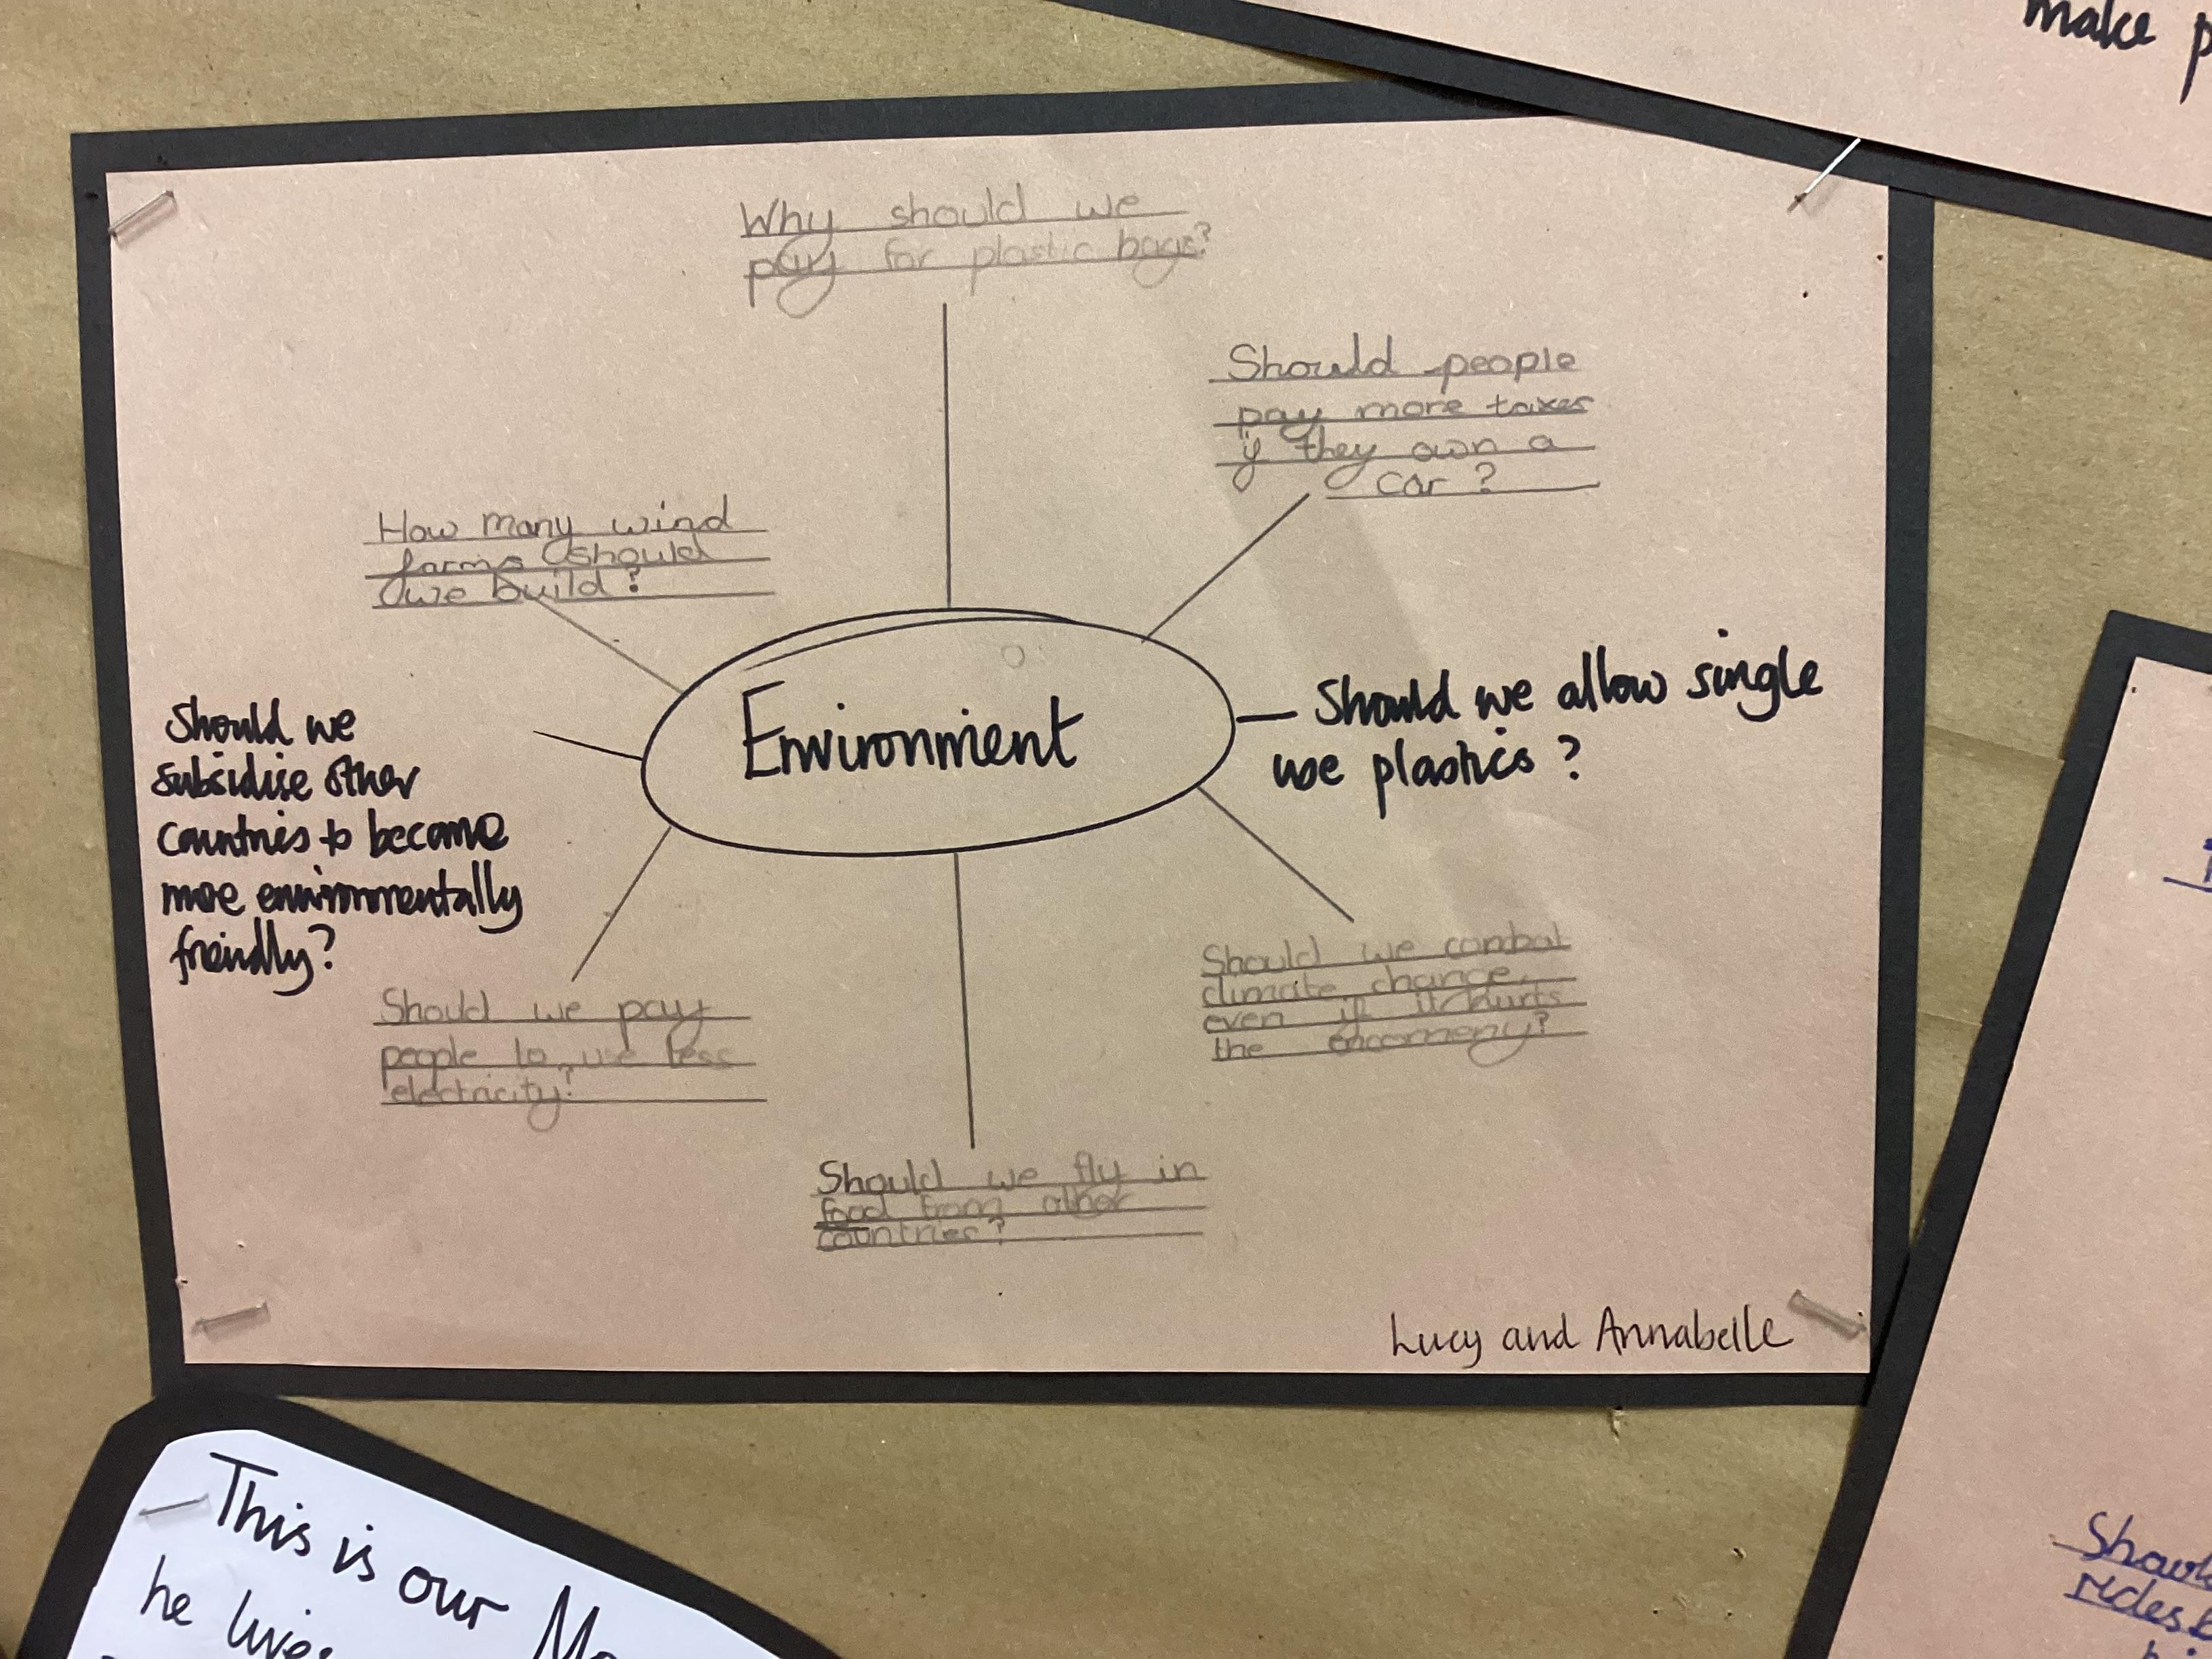 make p
Why should we
pay for plastic bags?
Should people
pay more taxes
if they own a
car ?
How many wind
farms should
we build ?
Environment
Should we allow single
use plastics ?
Should we
subsidise other
countries to become
more environmentally
friendly?
Should we combat
climate change,
even if it hurts
the encomeny?
Should we pay
people to use less
electricity?
Should we fly in
food from other
countries?
Lucy and Annabelle
This is our
he lives
Should